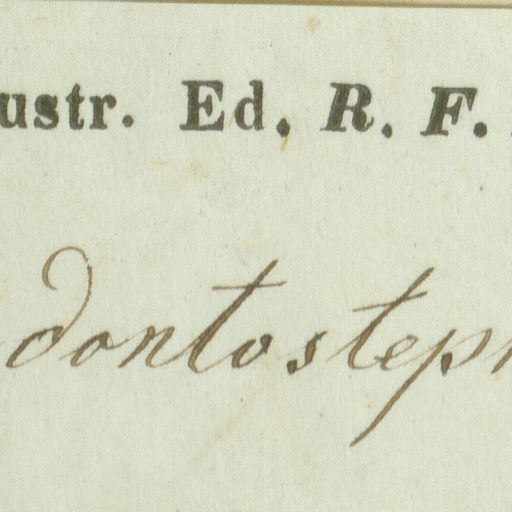 ustr. Ed. R. F.
dontosteph